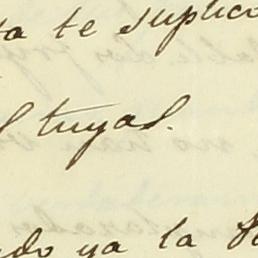 ta te suplico
tuyas.
ndo ya la